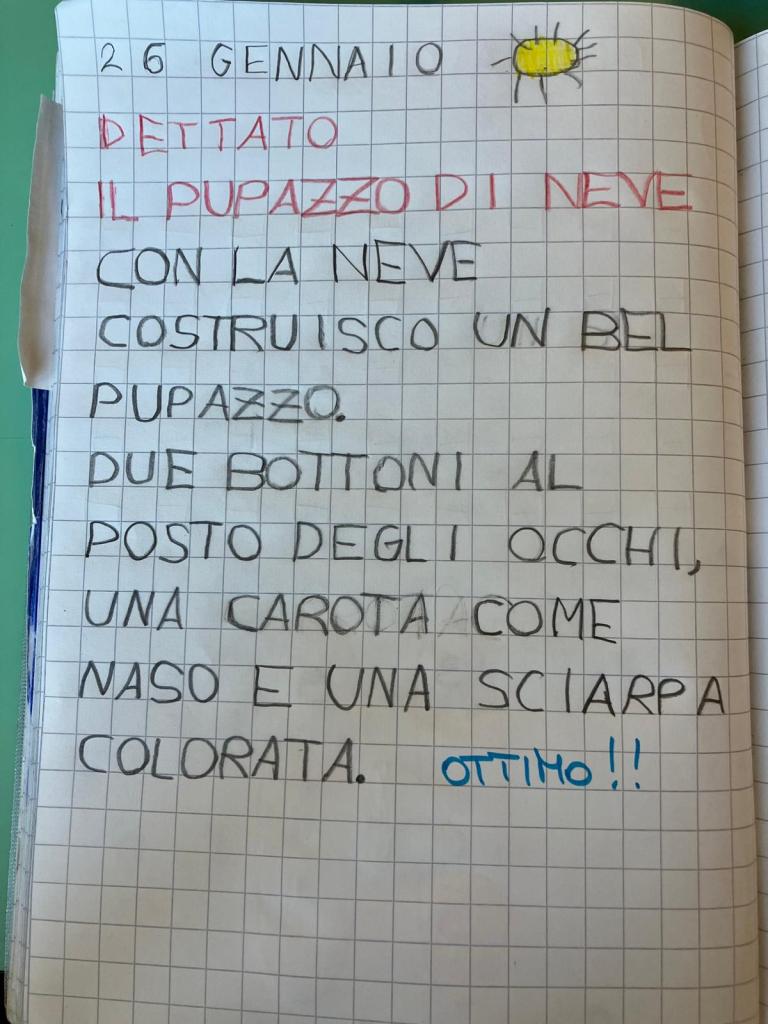 26 GENNAIO
DETTATO
IL PUPAZZO DI NEVE
CON LA NEVE
COSTRUISCO UN BEL
PUPAZZO.
DUE BOTTONI AL
POSTO DEGLI OCCHI,
UNA CAROTA COME
NASO E UNA SCIARPA
COLORATA. OTTIMO!!